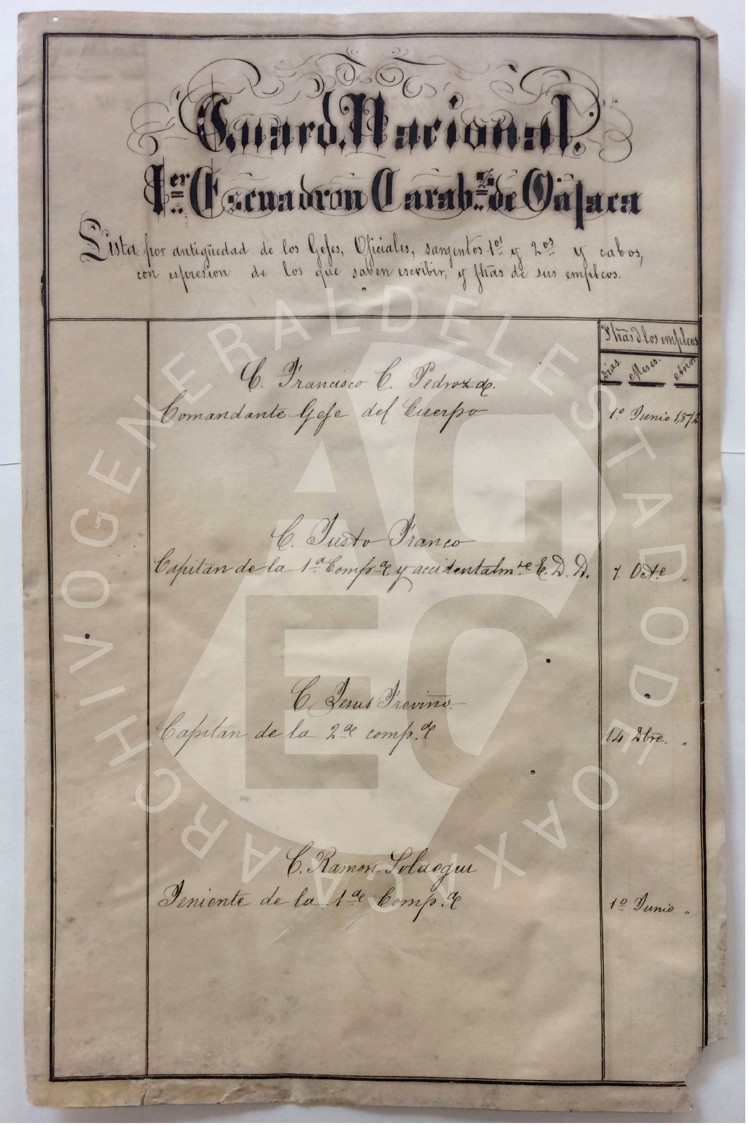 Guard. Nacional.
1er Escuadron Carabs. de Oajaca
Lista por antigüedad de los Gefes, Oficiales, sargentos 1os y 2os y cabos,
con espresion de los que saben escribir, y fhas de sus empleos.
Fhas d los empleos
Dias. Meses. Años
C. Francisco C. Pedroza.
Comandante Gefe del Cuerpo 1º Junio 1,872
C. Justo Franco
Capitan de la 1a Compa y accidentalmte E. D. D. 7. Octe "
C. Jesus Treviño.
Capitan de la 2a comp.a 14 Dbre. "
C. Ramon
Teniente de la 1a Comp.a 1º Junio "
ARCHIVO GENERAL DEL ESTADO DE OAXACA
AGEO